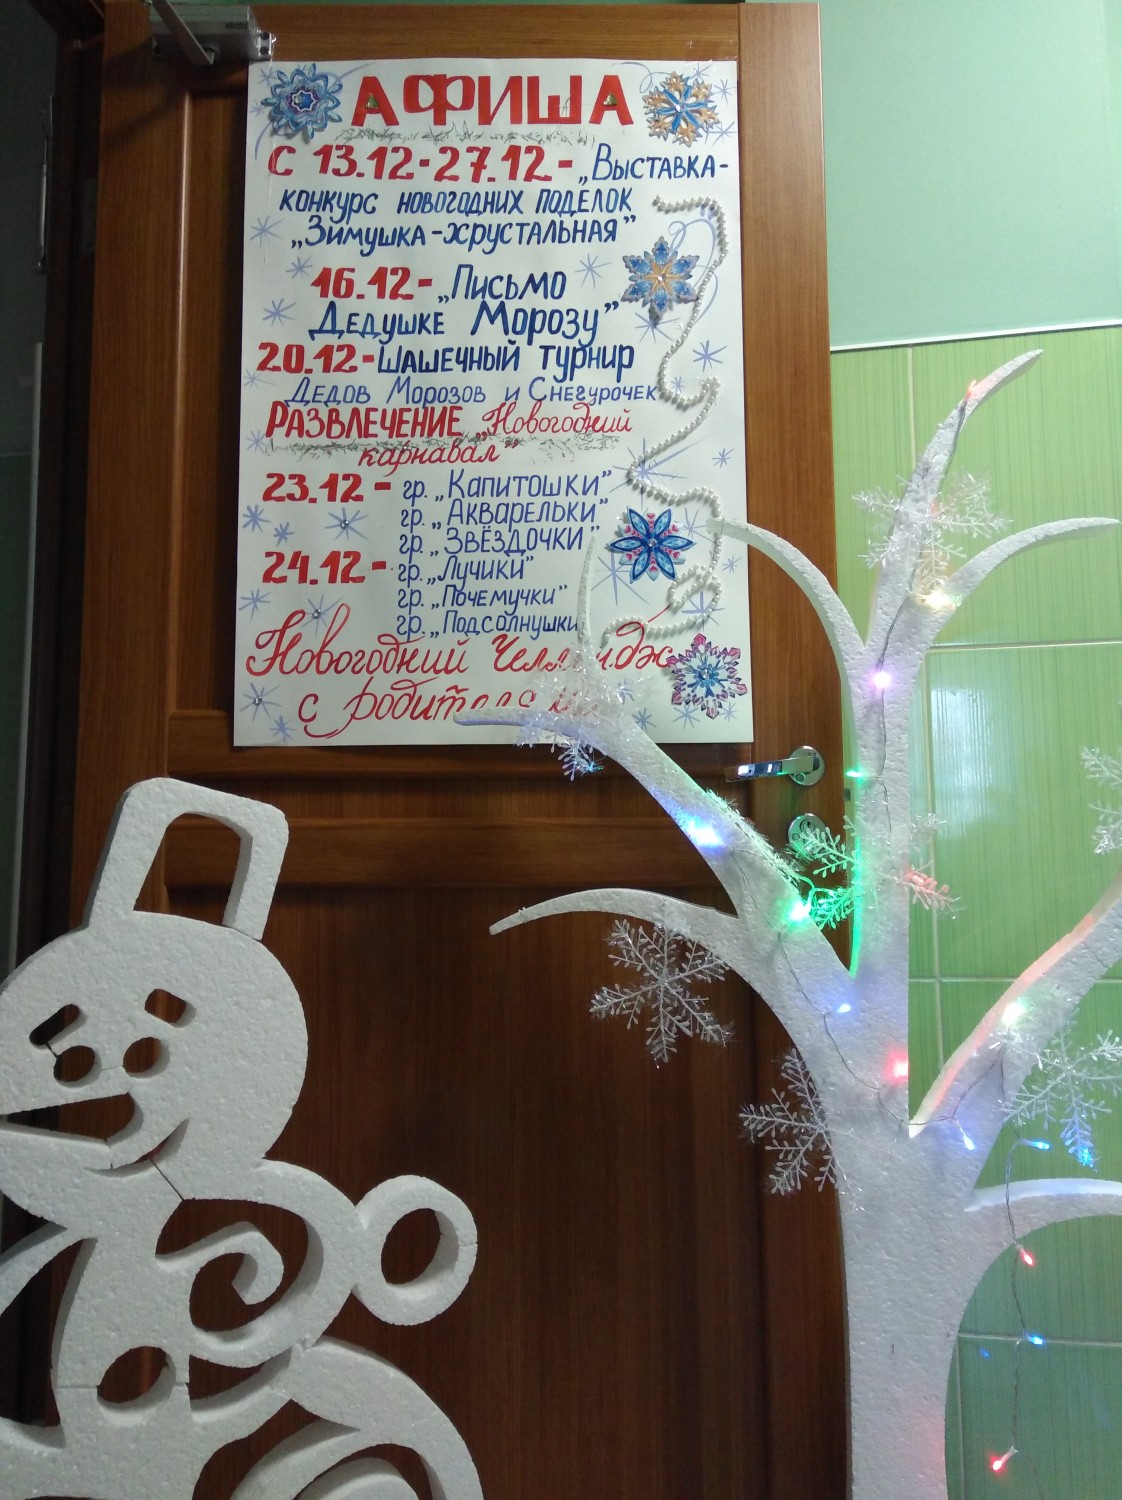 АФИША
С 13.12-27.12- „Выставка-
конкурс новогодних поделок
„Зимушка-хрустальная"
16.12- „Письмо
Дедушке Морозу"
20.12- Шашечный турнир
Дедов Морозов и Снегурочек
РАЗВЛЕЧЕНИЕ „Новогодний
карнавал"
23.12 - гр. „Капитошки"
гр. „Акварельки"
гр. „Звёздочки"
24.12 - гр. „Лучики"
гр. „Почемучки"
гр. „Подсолнушки
Новогодний Челлендж
с родителями